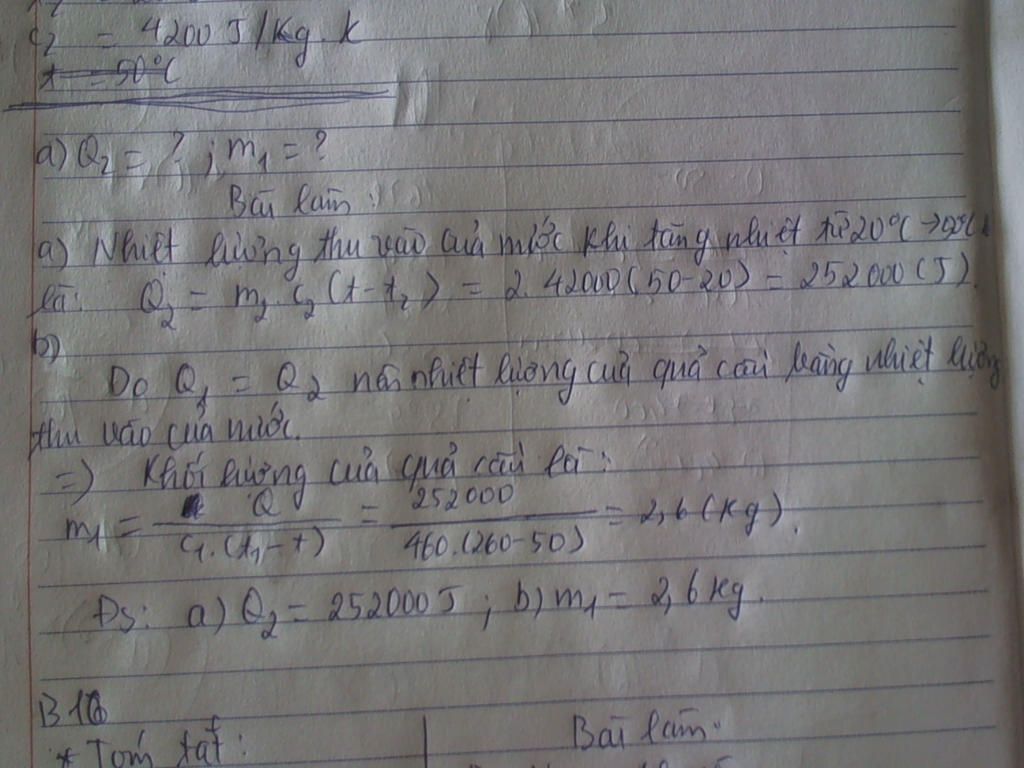 c₂ = 4200 J/Kg.k
t = 50°C
a) Q₂ = ? ; m₁ = ?
Bài làm:
a) Nhiệt lượng thu vào của nước khi tăng nhiệt từ 20°C → 50°C
là: Q₂ = m₂.c₂(t-t₂) = 2.42000(50-20) = 252000(J).
b)
Do Q₁ = Q₂ nên nhiệt lượng của quả cầu bằng nhiệt lượng
thu vào của nước.
=) Khối lượng của quả cầu là:
m₁ = Q / c₁.(t₁-t) = 252000 / 460.(260-50) = 2,6(Kg).
Đs: a) Q₂ = 252000J ; b) m₁ = 2,6 Kg.
B 10
* Tóm tắt: Bài làm.